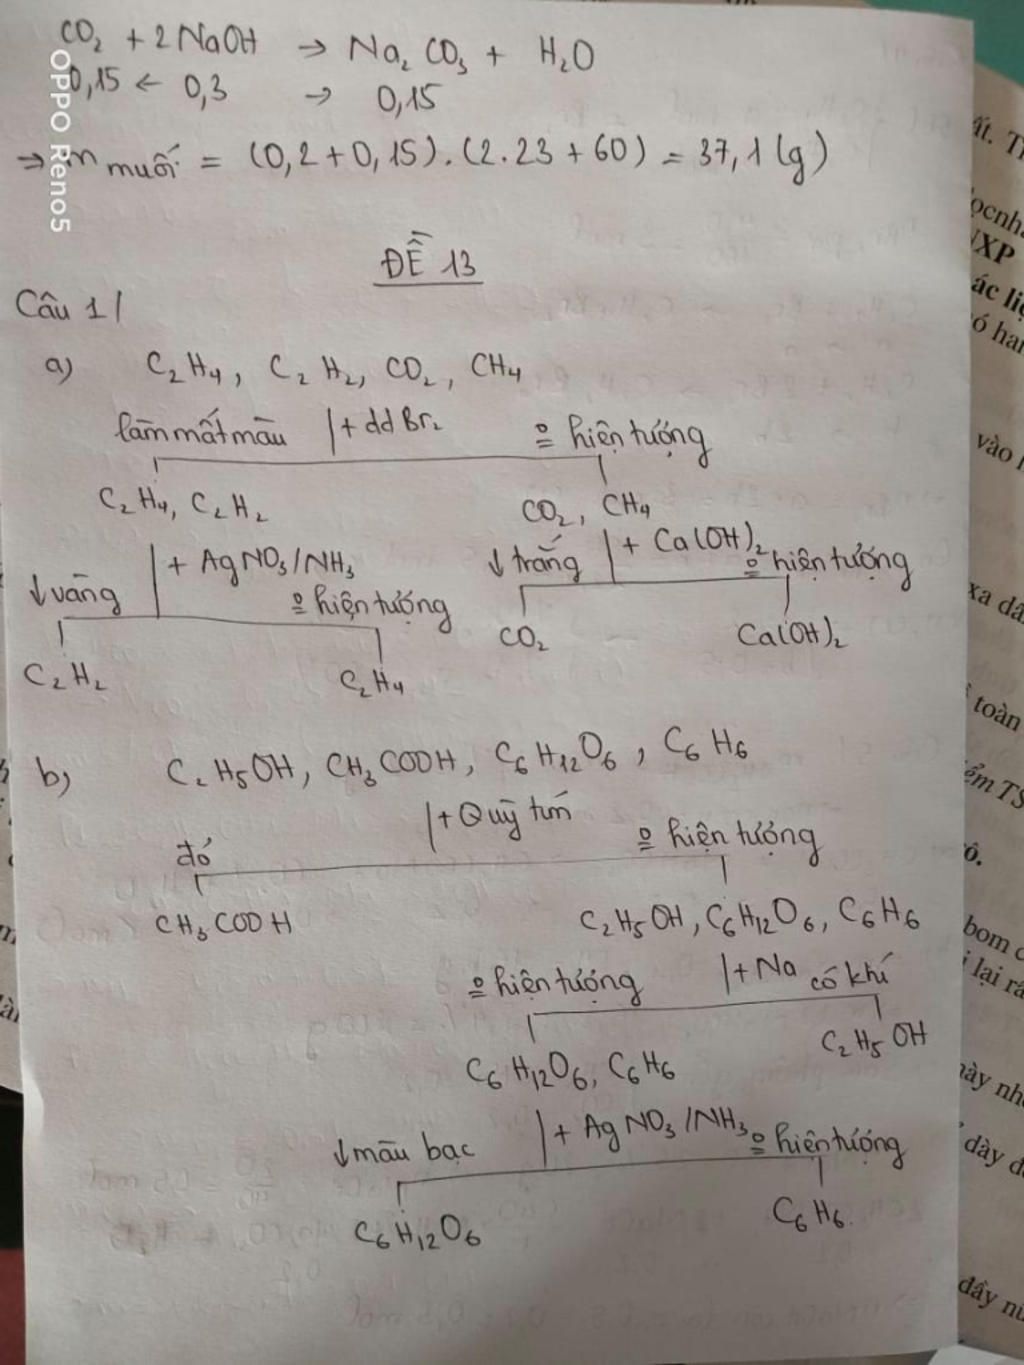 CO₂ + 2NaOH → Na₂CO₃ + H₂O
0,15 ← 0,3 → 0,15
⇒ m muối = (0,2+0,15).(2.23+60) = 37,1 (g)
OPPO Reno5
ĐỀ 13
Câu 1/
a) C₂H₄, C₂H₂, CO₂, CH₄
làm mất màu + dd Br₂ o hiện tượng
C₂H₄, C₂H₂ CO₂, CH₄
+ AgNO₃/NH₃ ↓trắng + Ca(OH)₂ o hiện tượng
↓vàng o hiện tượng
CO₂ Ca(OH)₂
C₂H₂ C₂H₄
b) C₂H₅OH, CH₃COOH, C₆H₁₂O₆, C₆H₆
+ Quỳ tím
đỏ o hiện tượng
CH₃COOH C₂H₅OH, C₆H₁₂O₆, C₆H₆
o hiện tượng + Na có khí
C₆H₁₂O₆, C₆H₆ C₂H₅OH
↓màu bạc + AgNO₃/NH₃ o hiện tượng
C₆H₁₂O₆ C₆H₆.
ất. T
ocnh
XP
ác liệ
ó hai
vào
xa dấ
toàn
ểm TS
ô.
bom
lại rấ
ày nh
dày đ
đấy nú